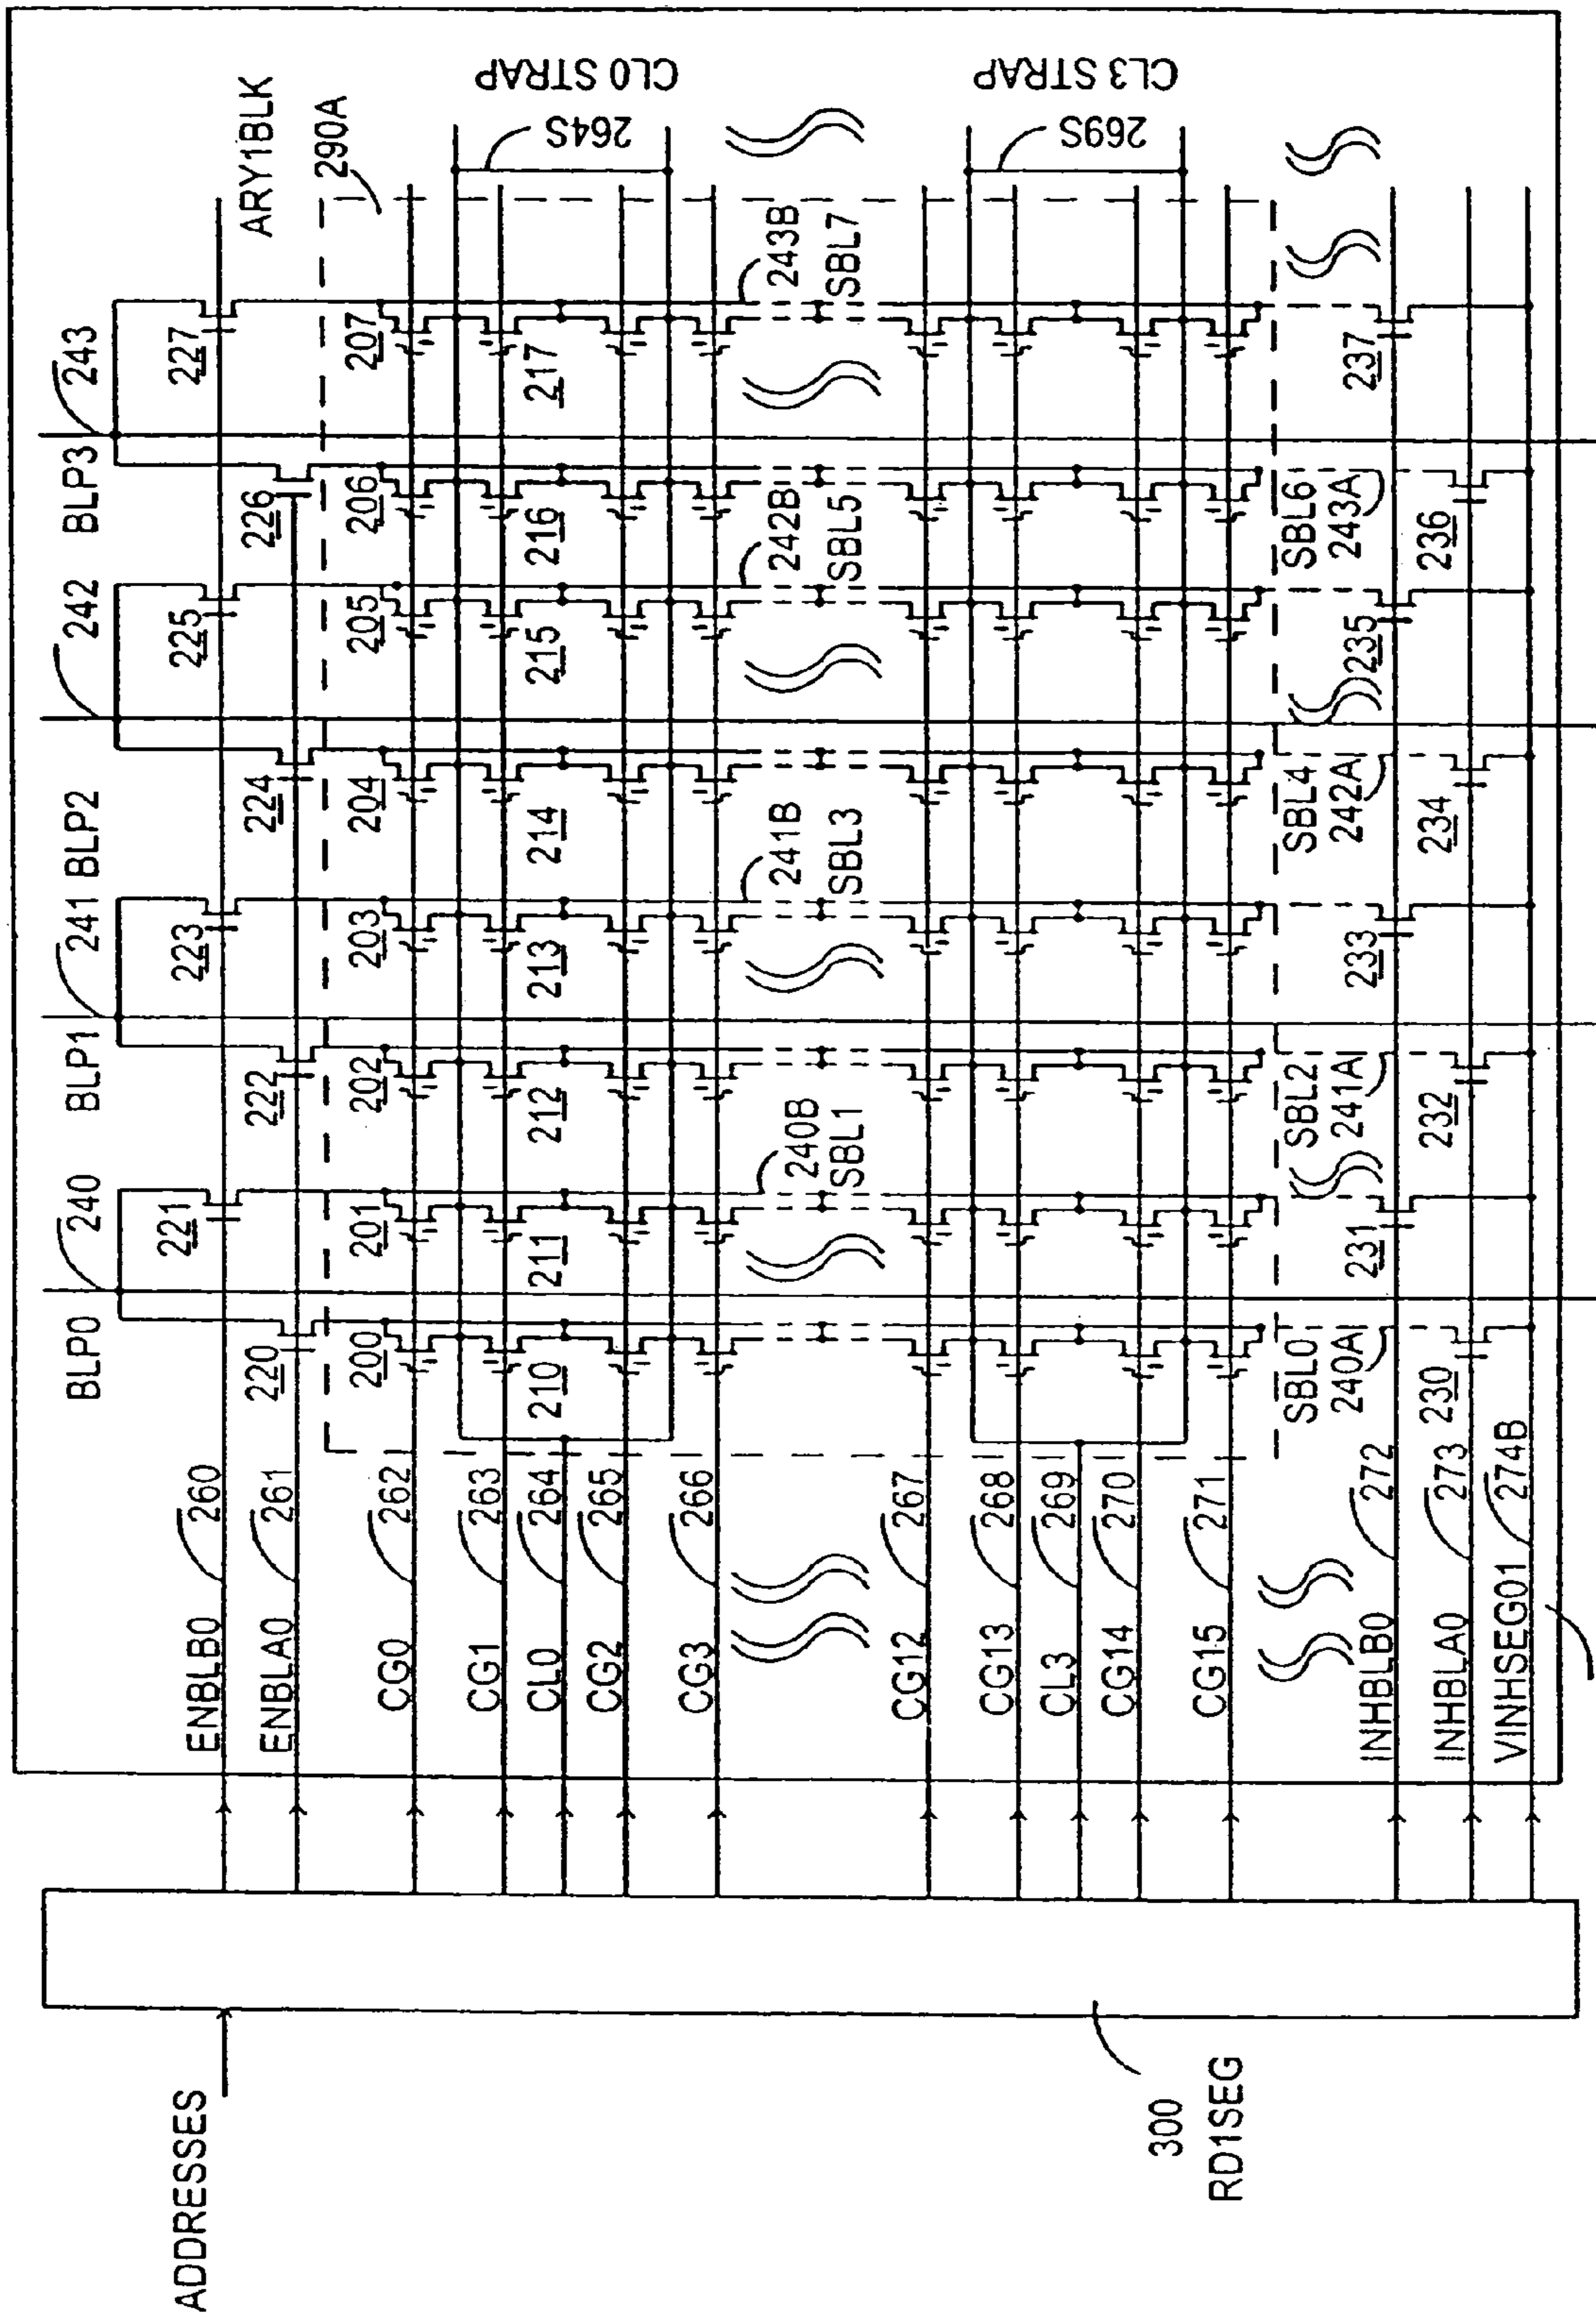 ADDRESSES
300
RD1SEG
ENBLB0 260
ENBLA0 261
CG0 262
CG1 263
CL0 264
CG2 265
CG3 266
CG12 267
CG13 268
CL3 269
CG14 270
CG15 271
INHBLB0 272
INHBLA0 273
VINHSEG01 274B
BLP0 240 BLP1 241 BLP2 242 BLP3 243
221 223 225 227
220 222 224 226
ARY1BLK
290A
200 201 202 203 204 205 206 207
210 211 212 213 214 215 216 217
CL0 STRAP
264S
240B 241B 242B 243B
SBL1 SBL3 SBL5 SBL7
CL3 STRAP
269S
SBL0 SBL2 SBL4 SBL6
240A 241A 242A 243A
231 233 235 237
230 232 234 236